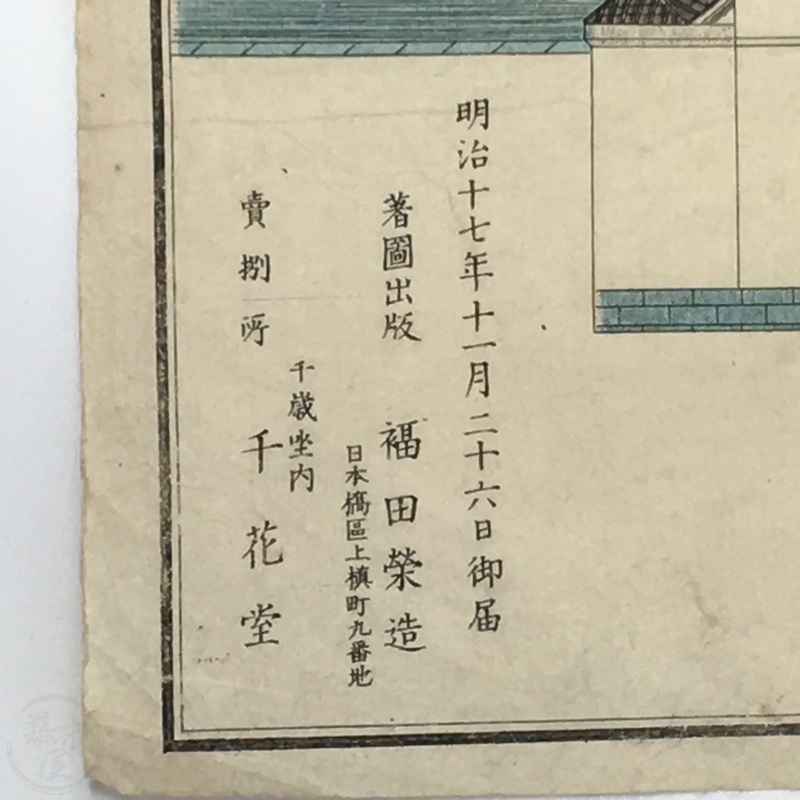 明治十七年十一月二十六日御届
著圖出版　福田榮造
日本橋區上槙町九番地
千歳坐内
賣捌所　千花堂